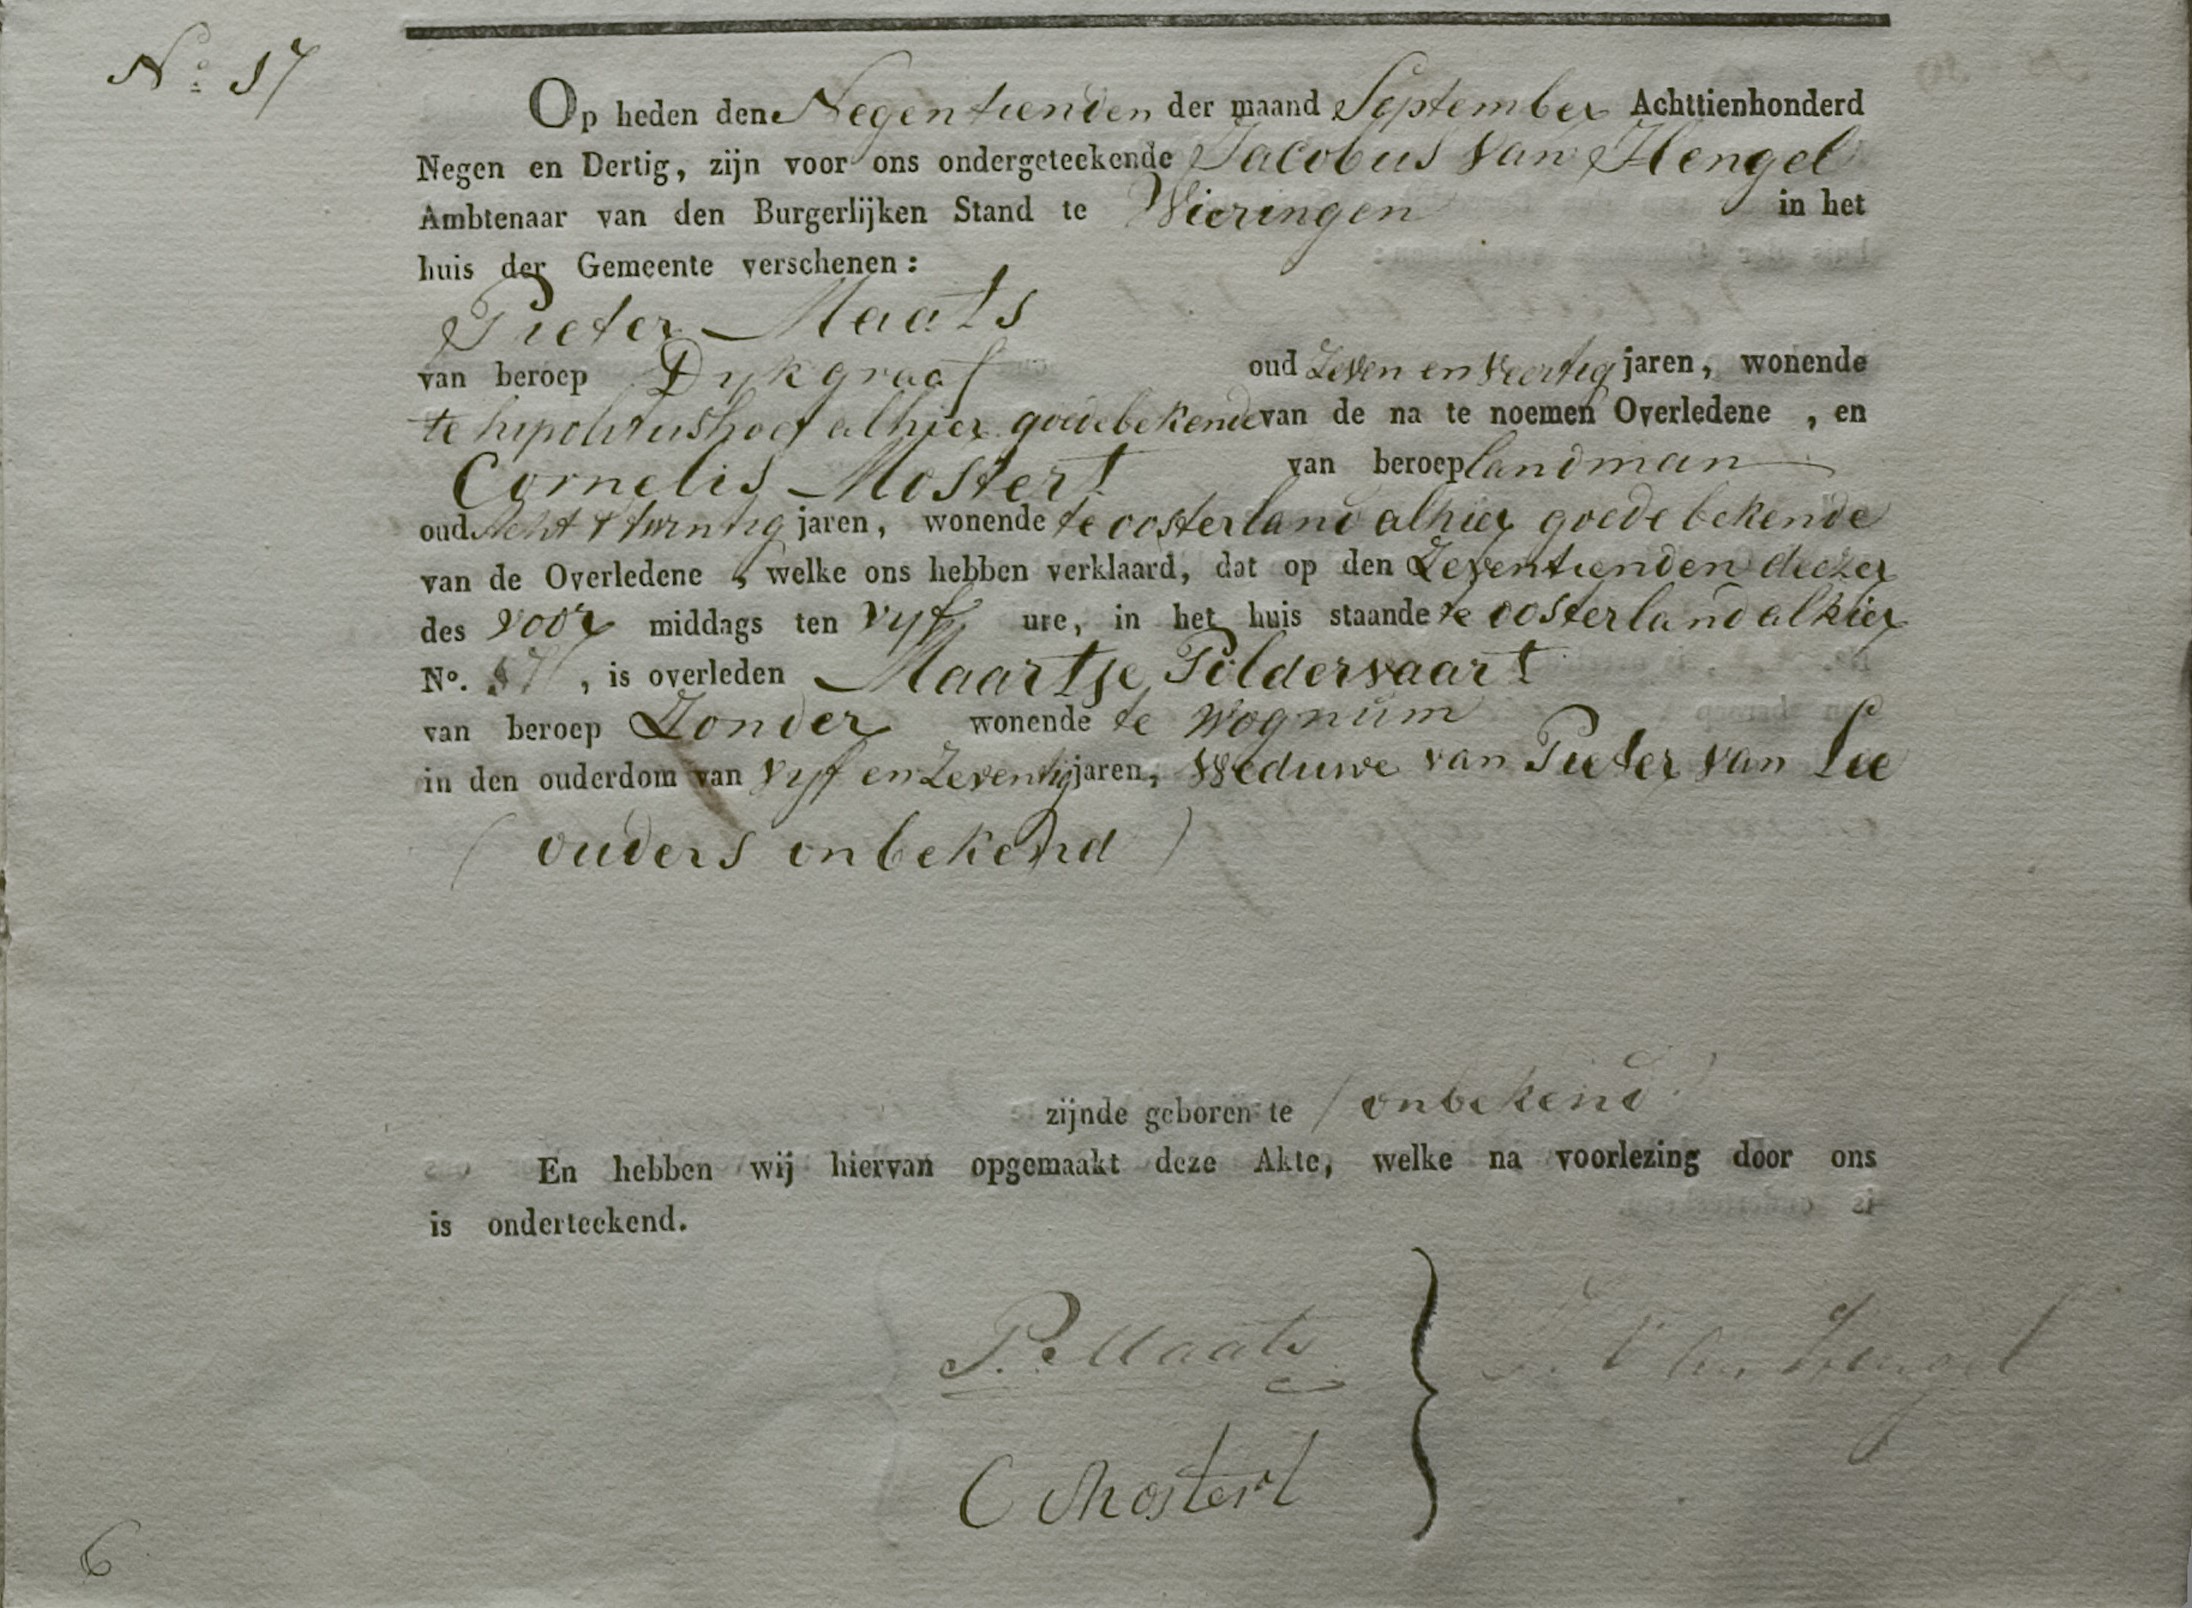 No. 17
Op heden den Negentienden der maand September Achttienhonderd
Negen en Dertig, zijn voor ons ondergeteekende Jacobus Van Hengel
Ambtenaar van den Burgerlijken Stand te Wieringen in het
huis der Gemeente verschenen:
Pieter Maats
van beroep Dykgraaf oud Zeven en Veertig jaren, wonende
te hipolitushoef alhier goede bekende van de na te noemen Overledene, en
Cornelis Mostert van beroep landman
oud Acht & twintig jaren, wonende te oosterland alhier goede bekende
van de Overledene, welke ons hebben verklaard, dat op den Zeventienden deezer
des voor middags ten vyf ure, in het huis staande te oosterland alhier
No. , is overleden Maartje Poldervaart
van beroep Zonder wonende te Wognum
in den ouderdom van Vyf en Zeventig jaren, Weduwe van Pieter Van Lee
(ouders onbekend)
zijnde geboren te (onbekend)
En hebben wij hiervan opgemaakt deze Akte, welke na voorlezing door ons
is onderteekend.
P. Maats J. Van Hengel
C Mostert
6